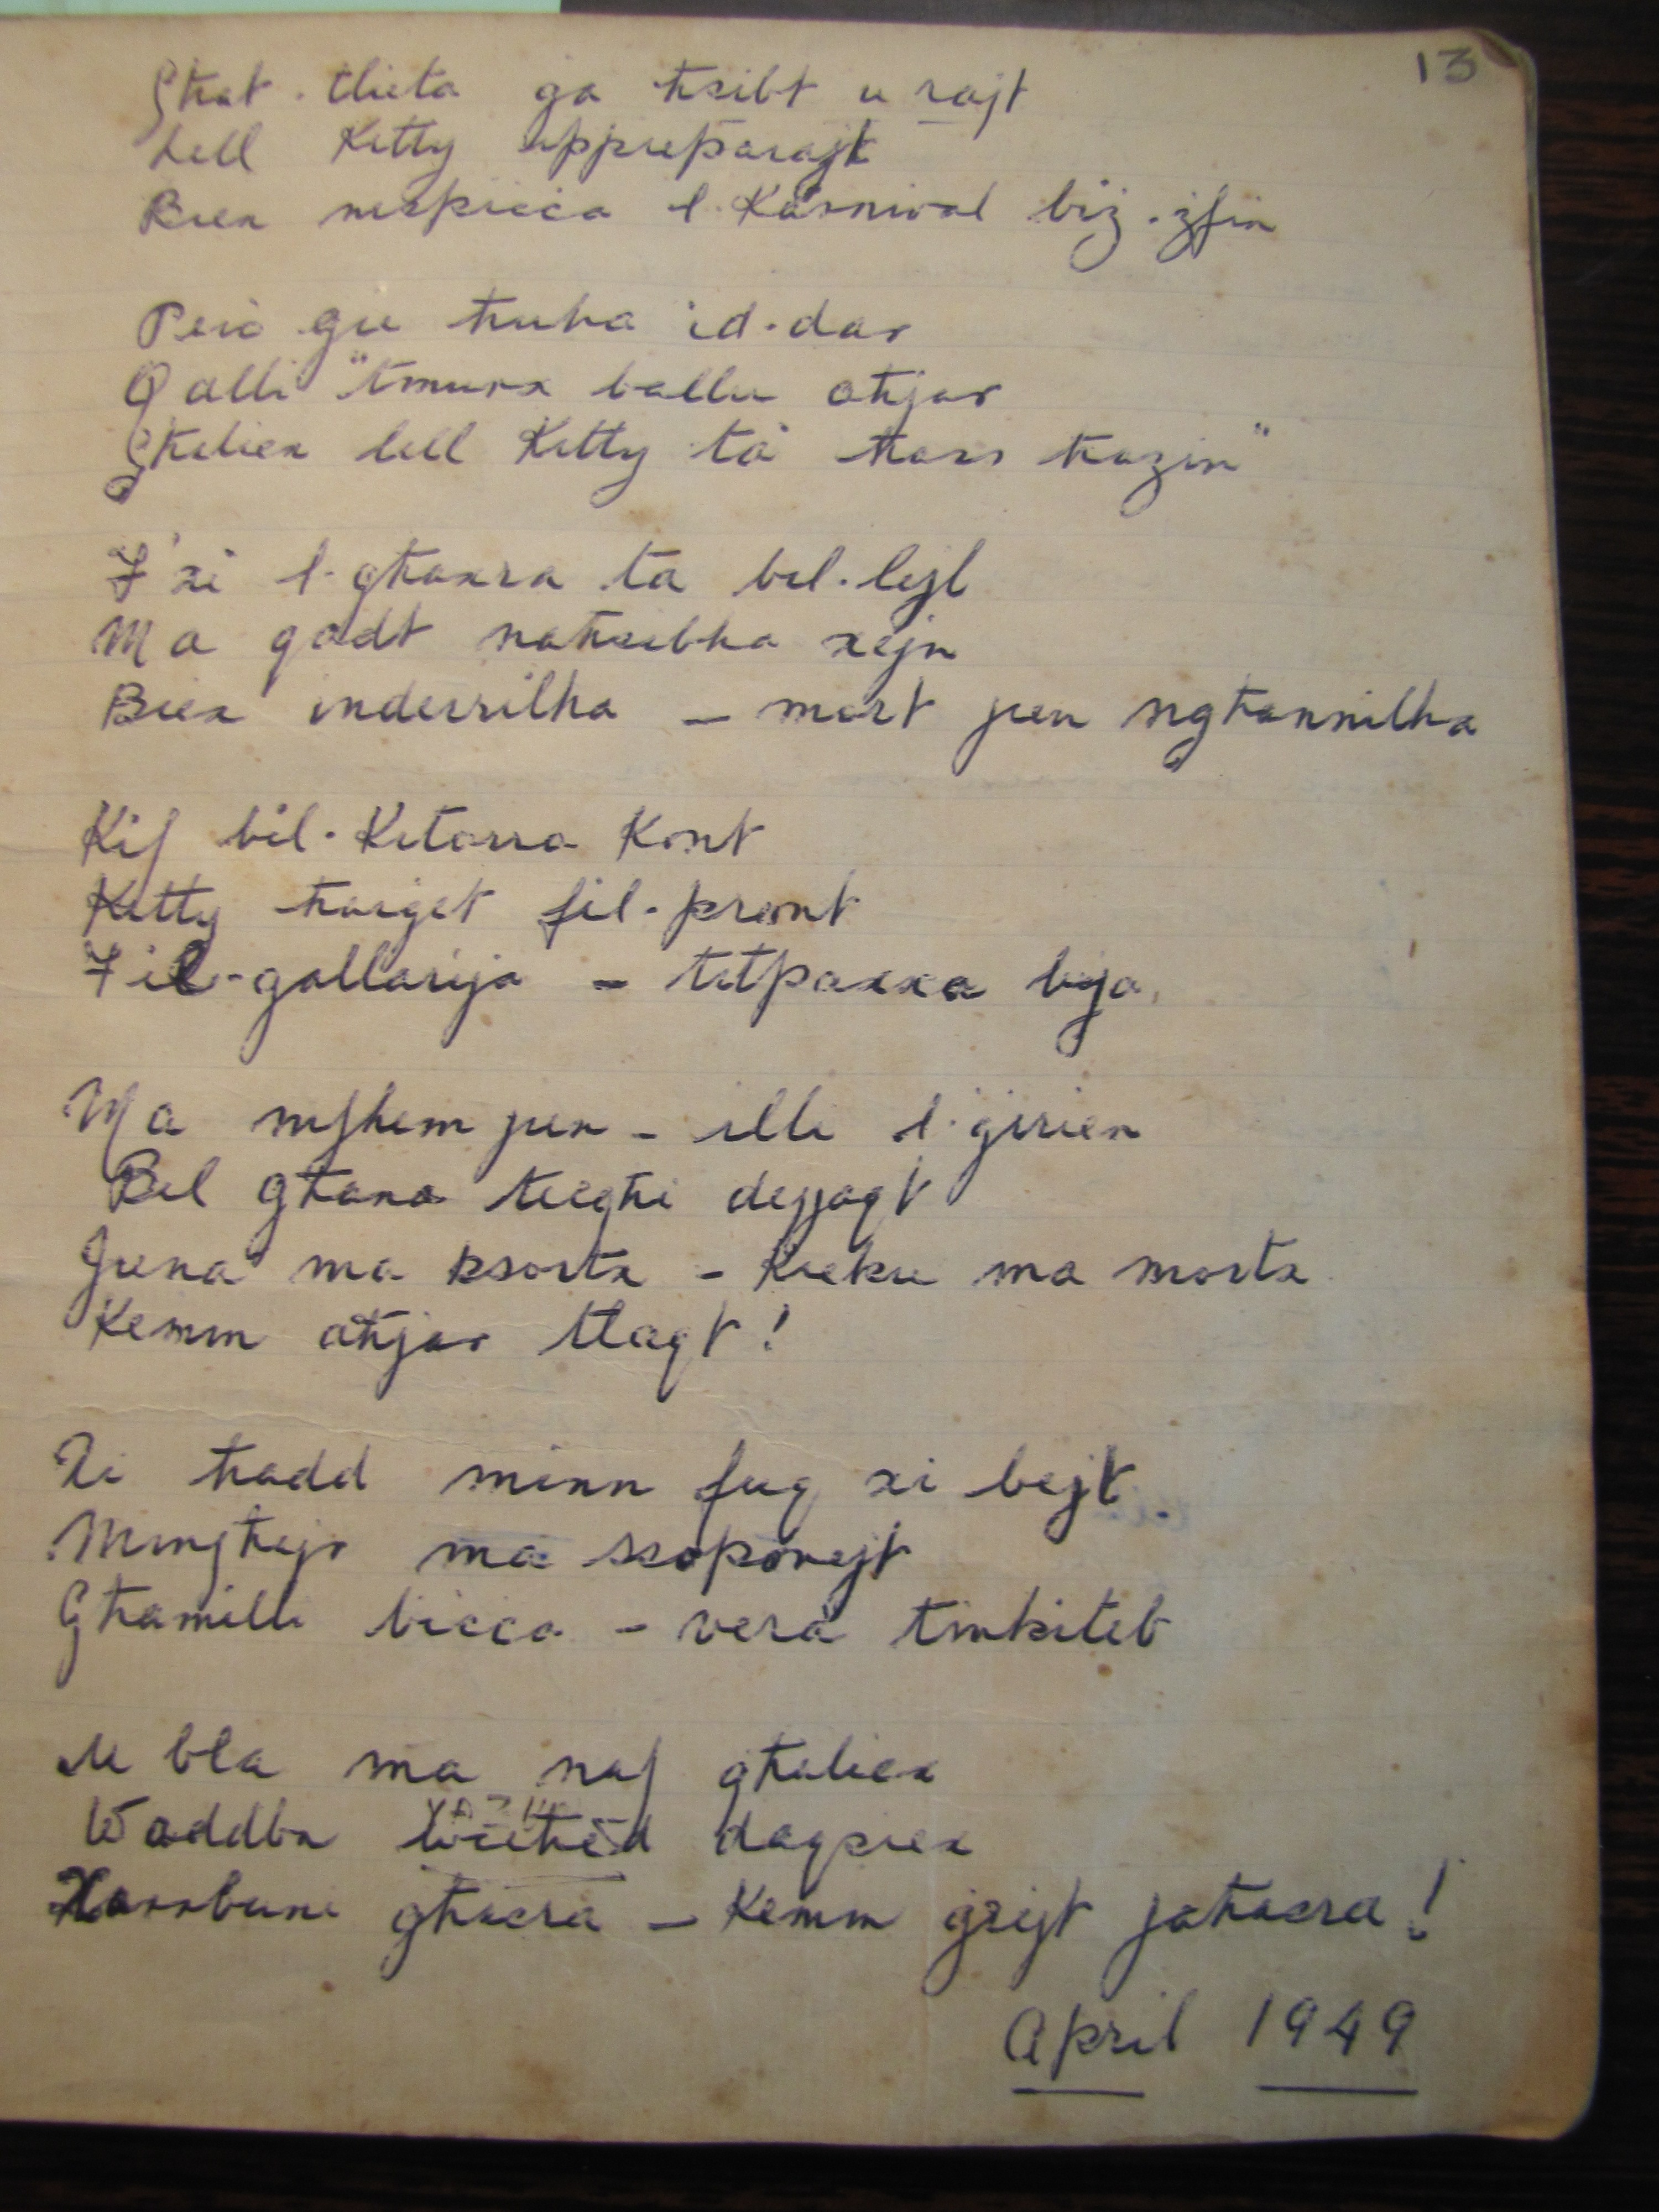 13
Għat-tlieta ġa ħsibt u rajt
Lill Ketty ippreparajt
Biex nispiċċa l-Karnival biż-żfin
Però ġie ħuha id-dar
Qalli "tmurx ballu aħjar
Għaliex lill Ketty ta' ħass ħażin"
F'xi l-għaxra ta bil-lejl
Ma qgħadt naħsibha xejn
Biex inderrilha – mort jien ngħannilha
Kif bil-Kitarra Kont
Ketty ħarġet fil-pront
Fil-gallarija – titpaxxa bija,
Ma nifhem jien – illi l-ġirien
Bil għana tiegħi dejjaqt
Jiena ma ksortx – Kieku ma mortx
Kemm aħjar tlaqt!
Xi ħadd minn fuq xi bejt
Mingħajr ma ssoponejt
Għamilli biċċa – vera tinkiteb
U bla ma naf għaliex
Waddbu wieħed daqsiex
Ħarrbuni għaċra – Kemm ġrejt jaħasra!
April 1949